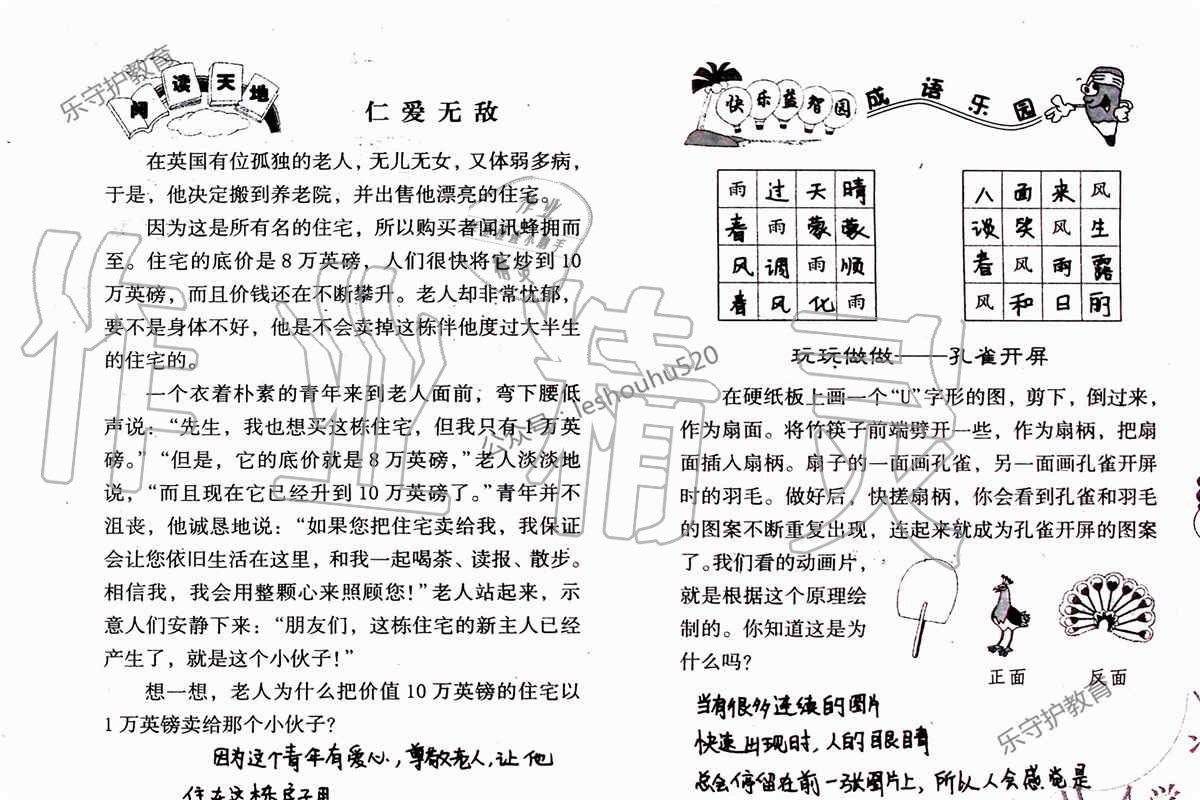 阅读天地
仁爱无敌
在英国有位孤独的老人，无儿无女，又体弱多病，
于是，他决定搬到养老院，并出售他漂亮的住宅。
因为这是所有名的住宅，所以购买者闻讯蜂拥而
至。住宅的底价是8万英磅，人们很快将它炒到10
万英磅，而且价钱还在不断攀升。老人却非常忧郁，
要不是身体不好，他是不会卖掉这栋伴他度过大半生
的住宅的。
一个衣着朴素的青年来到老人面前，弯下腰低
声说：“先生，我也想买这栋住宅，但我只有1万英
磅。”“但是，它的底价就是8万英磅，”老人淡淡地
说，“而且现在它已经升到10万英磅了。”青年并不
沮丧，他诚恳地说：“如果您把住宅卖给我，我保证
会让您依旧生活在这里，和我一起喝茶、读报、散步。
相信我，我会用整颗心来照顾您！”老人站起来，示
意人们安静下来：“朋友们，这栋住宅的新主人已经
产生了，就是这个小伙子！”
想一想，老人为什么把价值10万英镑的住宅以
1万英镑卖给那个小伙子？
因为这个青年有爱心，尊敬老人，让他
住在这栋房子里
快乐益智园
成语乐园
雨过天晴
春雨蒙蒙
风调雨顺
春风化雨
八面来风
谈笑风生
春风雨露
风和日丽
玩玩做做——孔雀开屏
在硬纸板上画一个“U”字形的图，剪下，倒过来，
作为扇面。将竹筷子前端劈开一些，作为扇柄，把扇
面插入扇柄。扇子的一面画孔雀，另一面画孔雀开屏
时的羽毛。做好后，快搓扇柄，你会看到孔雀和羽毛
的图案不断重复出现，连起来就成为孔雀开屏的图案
了。我们看的动画片，
就是根据这个原理绘
制的。你知道这是为
什么吗？
正面
反面
当有很多连续的图片
快速出现时，人的眼睛
总会停留在前一张图片上，所以人会感觉是
乐守护教育
作业精灵
公众号：leshouhu520
乐守护教育